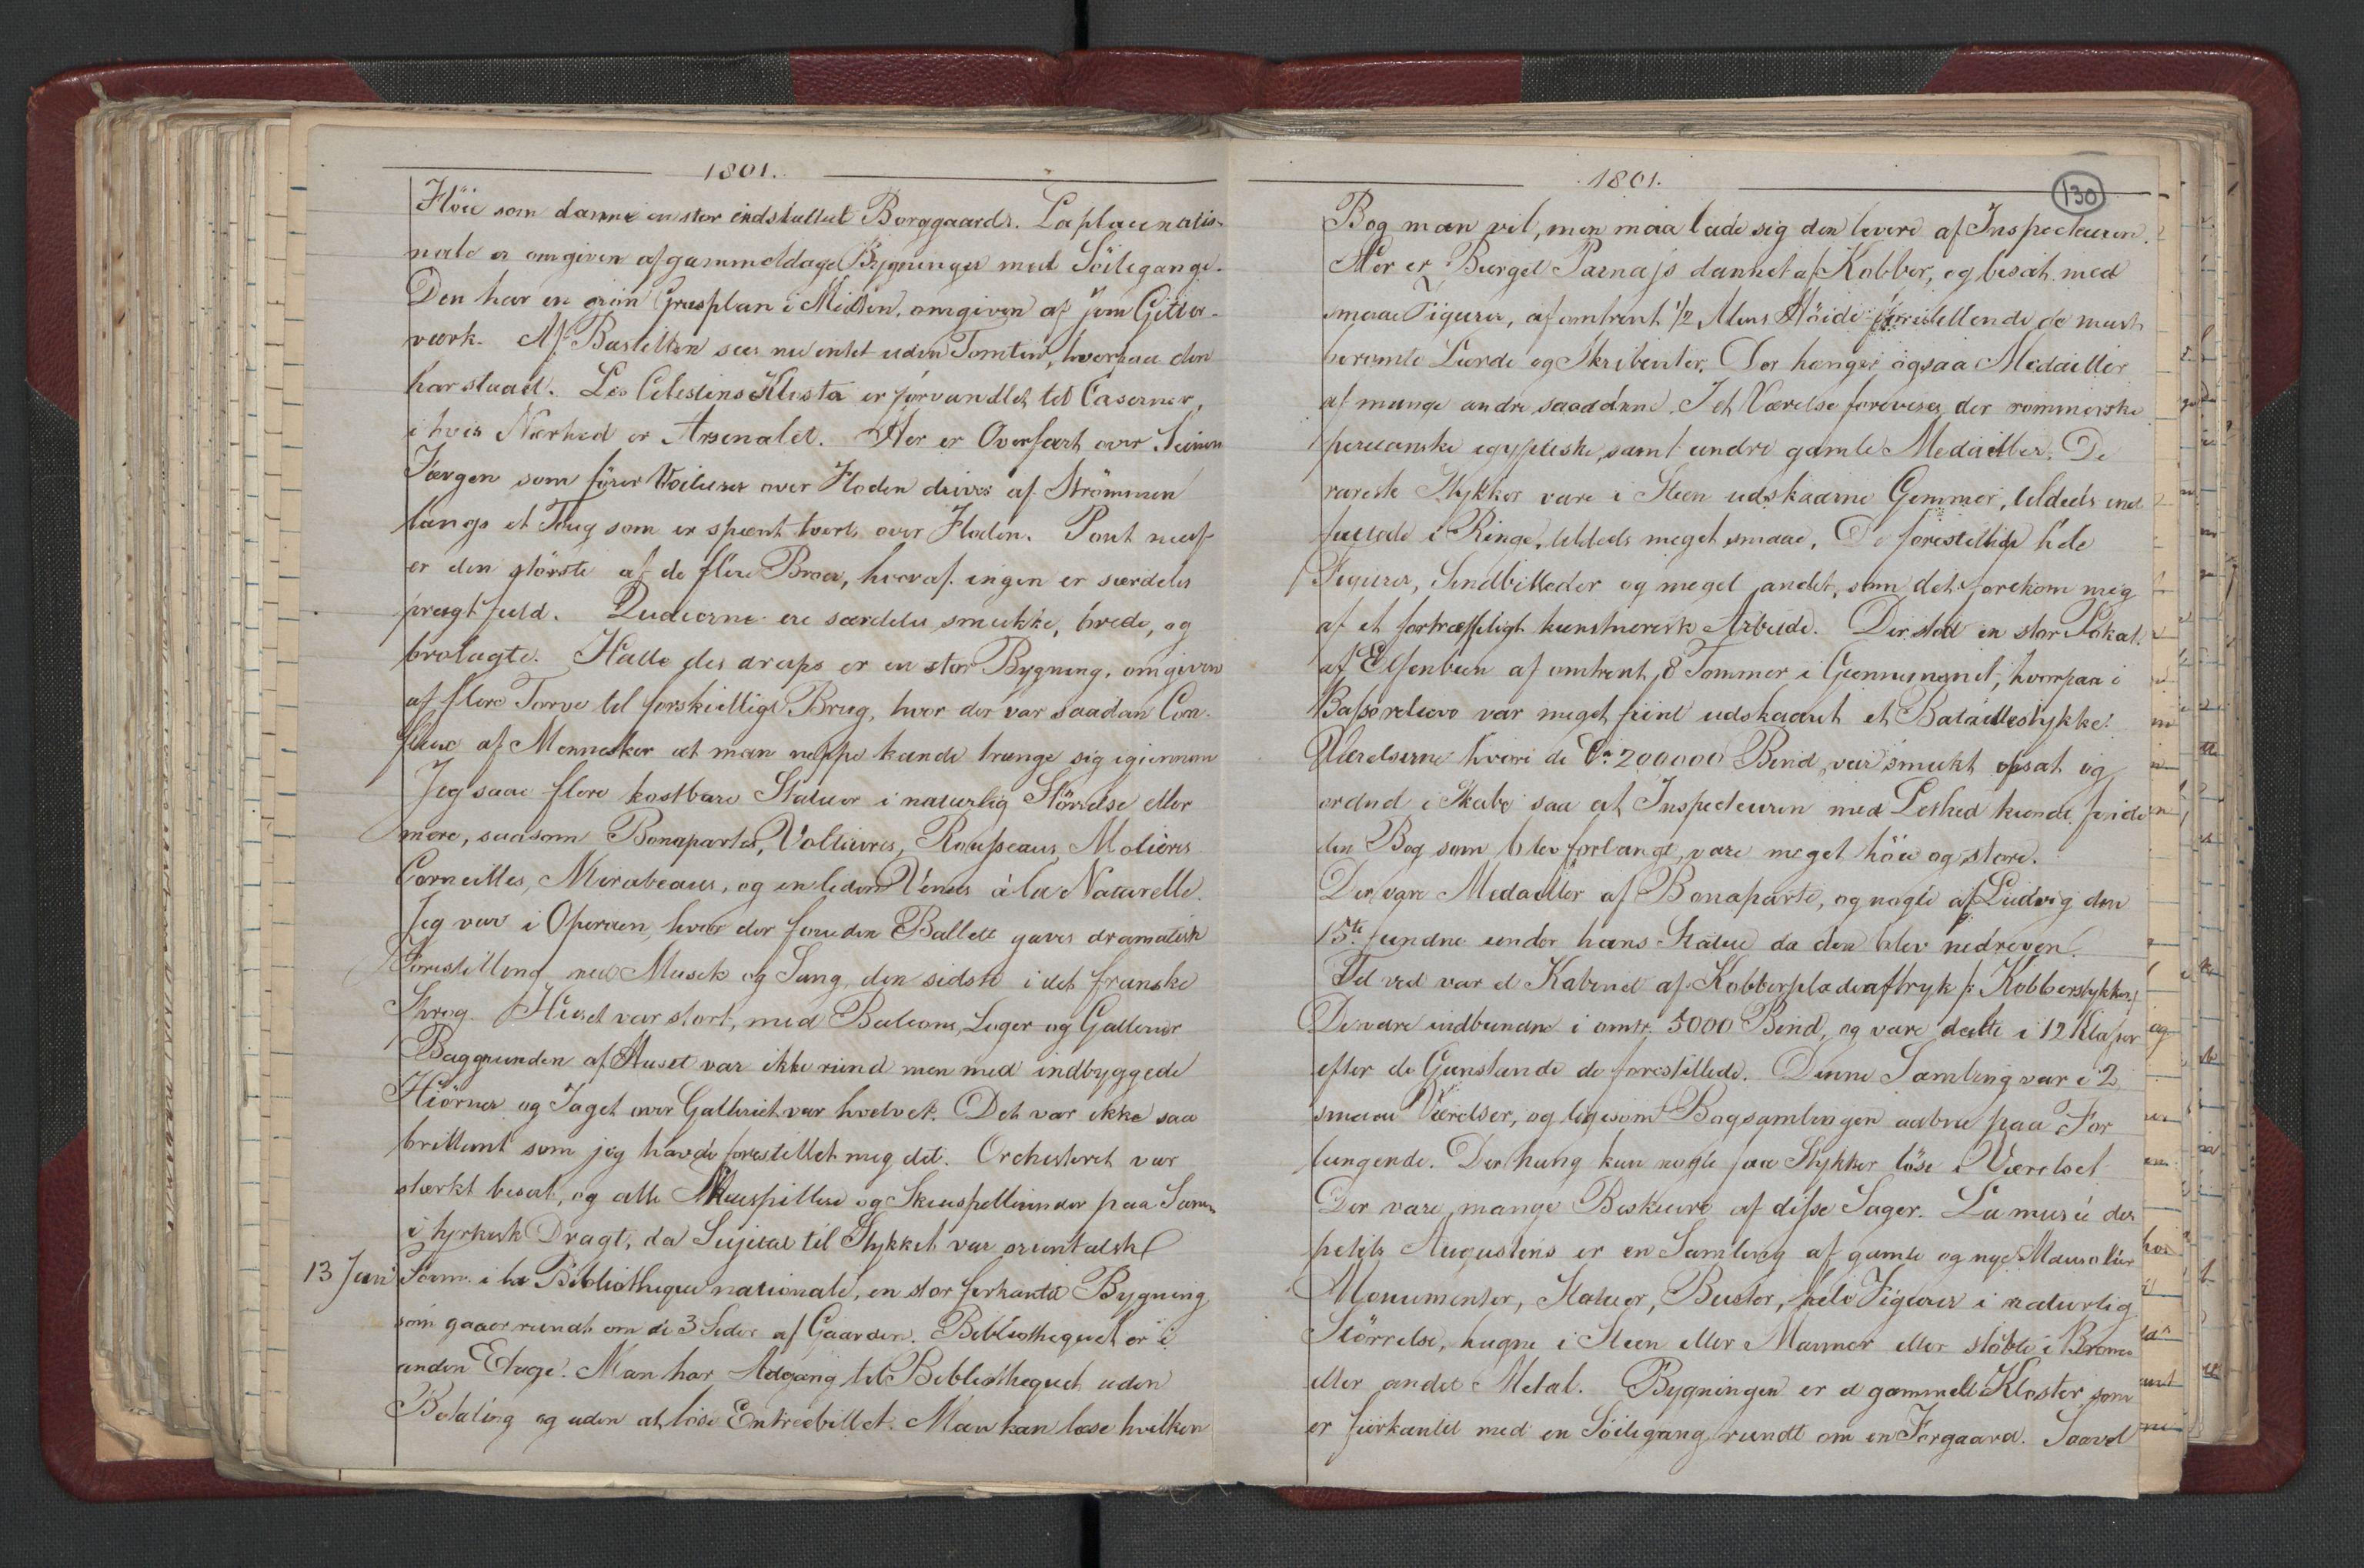 1801.
Flöie som danne en stor indsluttet Borggaards. La place natio-
nale er omgiven af gammeldags Bygninger med Söilegange.
Den har en grön Græsplan i Midten, omgiven af Jern Gitter-
værk. Af Bastillen sees nu intet uden Tomten, hvorpaa den
har staaet. Les Celestins Kloster er forvandlet til Caserner,
i hvis Nærhed er Arsenalet. Her er Overfart over Seinen
Færgen som förer Voiturer over Floden drives af Strömmen
langs et Toug som er spændt tværts over Floden. Pont neuf
er den störste af de flere Broer, hvoraf ingen er særdeles
prægtfuld. Quaierne ere særdeles smukke, brede, og
brolagte. Halle des draps er en stor Bygning, omgiven
af flere Torve til forskielligt Brug, hvor der var saadan Con-
fluxe af Mennesker at man neppe kunde trænge sig igiennem
Jeg saae flere kostbare Statuer i naturlig Störrelse eller
mere, saasom Bonapartes, Voltaires, Rousseaus, Molieres
Corneilles, Mirabeaus, og en liden Venus à la Naturelle.
Jeg var i Operaen, hvor der foruden Ballett gaves dramatisk
Forestilling med Musik og Sang, den sidste i det franske
Sprog. Huset var stort, med Balcons, Loger og Gallerier
Baggrunden af Huset var ikke rund men med indbyggede
Hiörner og Taget over Galleriet var hvelvet. Det var ikke saa
brillant som jeg havde forestillet mig det. Orchesteret var
stærkt besat, og alle Skuespillere og Skuespillerinder paa Scenen
i tyrkisk Dragt, da Sujetet til Stykket var orientalsk
13 Juni Form. i la Bibliotheque nationale, en stor firkantet Bygning
som gaaer rundt om de 3 Sider af Gaarden. Bibliothequet er i
anden Etage. Man har Adgang til Bibliothequet uden
Betaling og uden at löse Entreebillet. Man kan læse hvilken
1801.
130
Bog man vil, men maa lade sig den levere af Inspecteuren.
Her er Bierget Parnass dannet af Kobber, og besat med
smaae Figurer, af omtrent 1/2 Alens Höide forestillende de mest
berömte Lærde og Skribenter. Der hænger ogsaa Medailler
af mange andre saadanne. I et Værelse forevises der rommerske
peruanske egyptiske, samt andre gamle Medailler. De
rareste Stykker vare i Steen udskaarne Gemmer, tildeels ind
fattede i Ringe, tildeels meget smaae. De forestillede hele
Figurer, Sindbilleder og meget andet, som det forekom mig
af et fortræffeligt kunstnerisk Arbeide. Der stod en stor Pokal
af Elfenbeen af omtrent 8 Tommer i Giennemsnit, hvorpaa i
Bassorelievo var meget fiint udskaaret et Bataillestykke.
Værelserne hvori de Ca 200000 Bind var smukt opsat og
ordnet i Skabe saa at Inspecteuren med Lethed kunde finde
den Bog som blev forlangt, vare meget höie og store.
Der vare Medailler af Bonaparte, og nogle af Ludvig den
15de fundne under hans Statue da den blev nedreven.
Tæt ved var et Kabinet af Kobberpladeaftryk s: Kobberstykker/
De vare indbundne i omtr. 5000 Bind, og vare deelte i 12 Klasser
efter de Gienstande de forestillede. Denne Samling var i 2
smaae Værelser, og ligesom Bogsamlingen aabne paa For
langende. Der hang kun nogle faa Stykker löse i Værelset
Der vare mange Beskuere af disse Sager. La musée des
petits Augustins er en Samling af gamle og nye Mausoléer
Monumenter, Statuer, Buster, hele Figurer i naturlig
Störrelse, hugne i Steen eller Marmor eller stöbte i Bronce
eller andet Metal. Bygningen er et gammelt Kloster, som
er fiirkantet med en Söilegang rundt om en Forgaard. Saavel